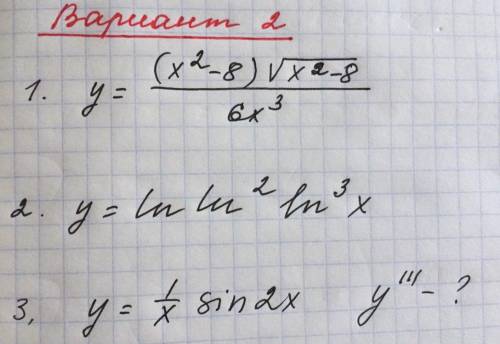 Вариант 2
1. y = (x² - 8) √x² - 8 / 6x³
2. y = ln ln² ln³ x
3, y = 1/x sin 2x y''' - ?